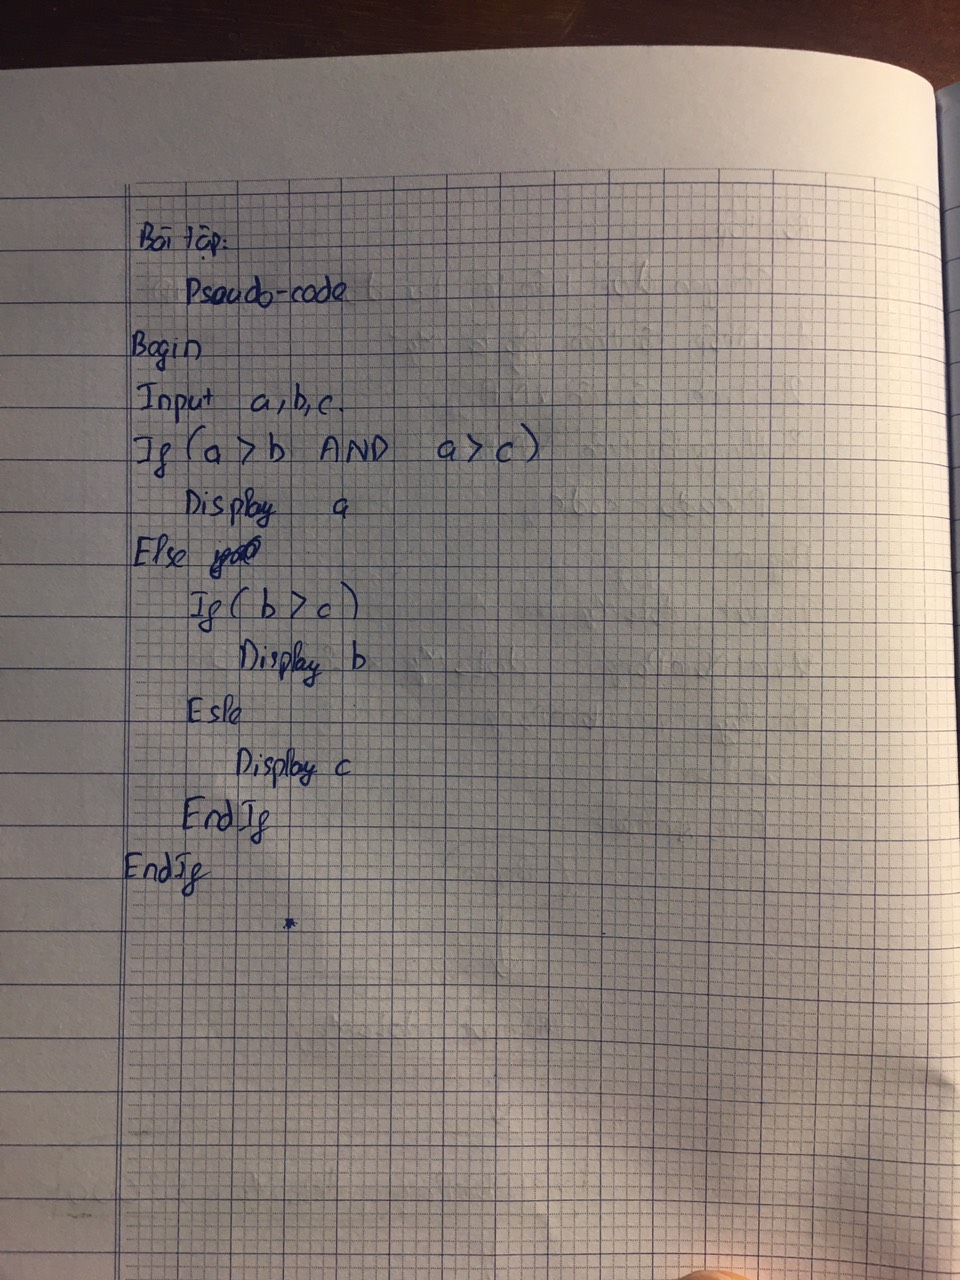 Bài tập:
Pseudo-code
Begin
Input a, b, c.
If (a > b AND a > c)
Display a
Else
If ( b > c )
Display b
Esle
Display c
EndIf
EndIf